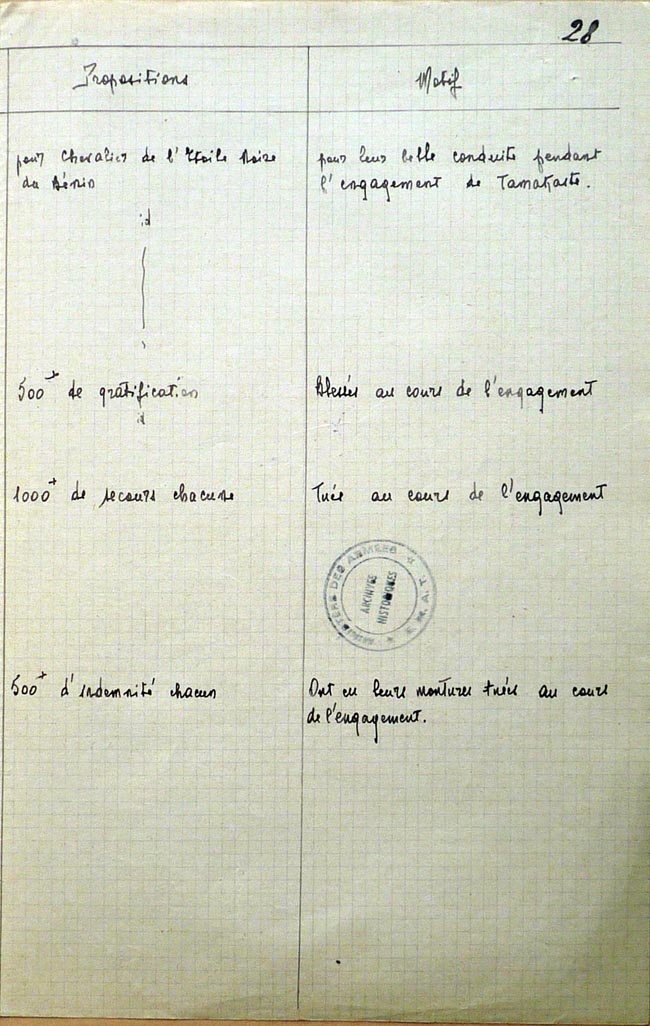 28
Propositions
Motif
pour Chevalier de l'Etoile Noire
du Bénin
pour leur belle conduite pendant
l'engagement de Tamakaste.
id
500+ de gratification
Blessés au cours de l'engagement
id
1000+ de secours chacune
Tués au cours de l'engagement
MINISTERE DES ARMEES ★ E.M.A.T. ★
ARCHIVES
HISTORIQUES
500+ d'indemnité chacun
Ont eu leurs montures tuées au cours
de l'engagement.